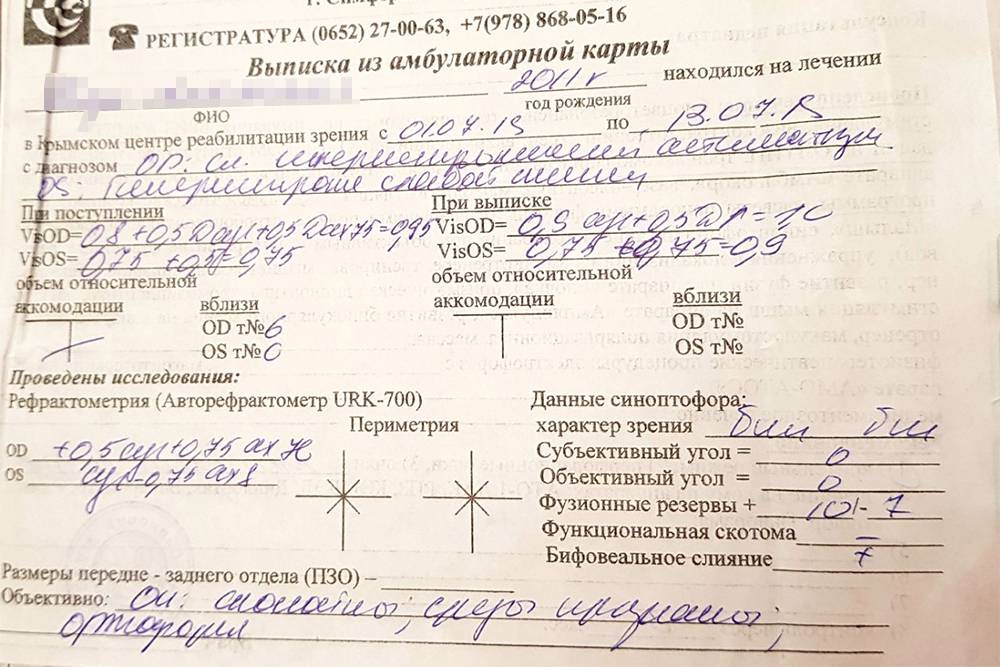 РЕГИСТРАТУРА (0652) 27-00-63, +7(978) 868-05-16
Выписка из амбулаторной карты
2011 г находился на лечении
ФИО год рождения
в Крымском центре реабилитации зрения с 01.07.19 по 13.07.19
с диагнозом OD: Сл. гиперметропический астигматизм.
OS: Гиперметропия слабой степени
При поступлении При выписке
VisOD= 0,8 +0,5 D cyl+0,5 D ax 75 = 0,95 VisOD= 0,8 cyl+0,5 D = 1,0
VisOS= 0,75 +0,5 = 0,75 VisOS= 0,75 +0,75 = 0,9
объем относительной объем относительной
аккомодации вблизи аккомодации вблизи
OD т№ 6 OD т№
OS т№ OS т№
Проведены исследования:
Рефрактометрия (Авторефрактометр URK-700) Данные синоптофора:
Периметрия характер зрения бин бин
OD +0,5 cyl+0,75 ax Субъективный угол = 0
OS cyl-0,75 ax Объективный угол = 0
Фузионные резервы + 10/- 7
Функциональная скотома –
Бифовеальное слияние +
Размеры передне - заднего отдела (ПЗО) –
Объективно: ОИ: спокойны; среды прозрачны;
ортофория